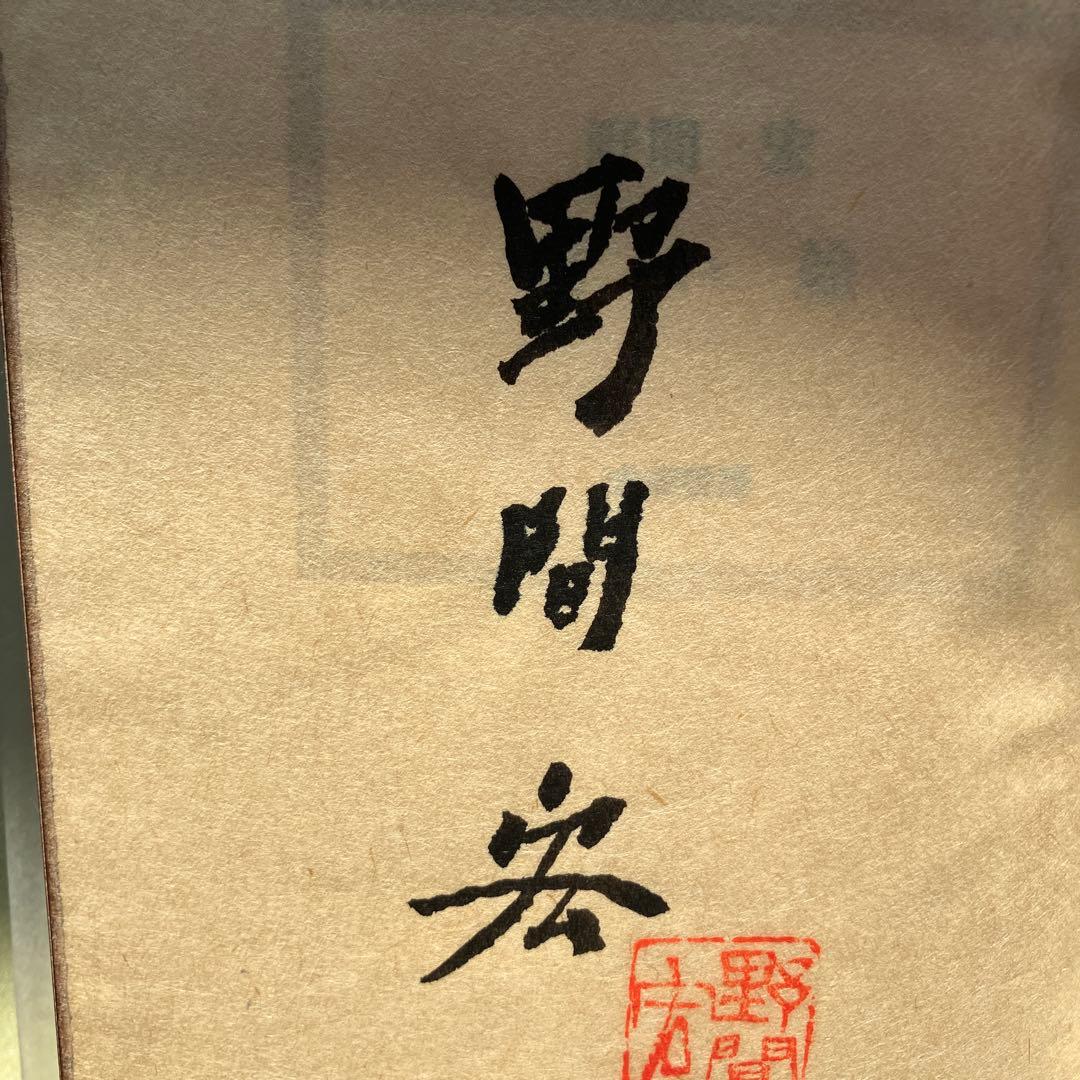 野間宏
野間